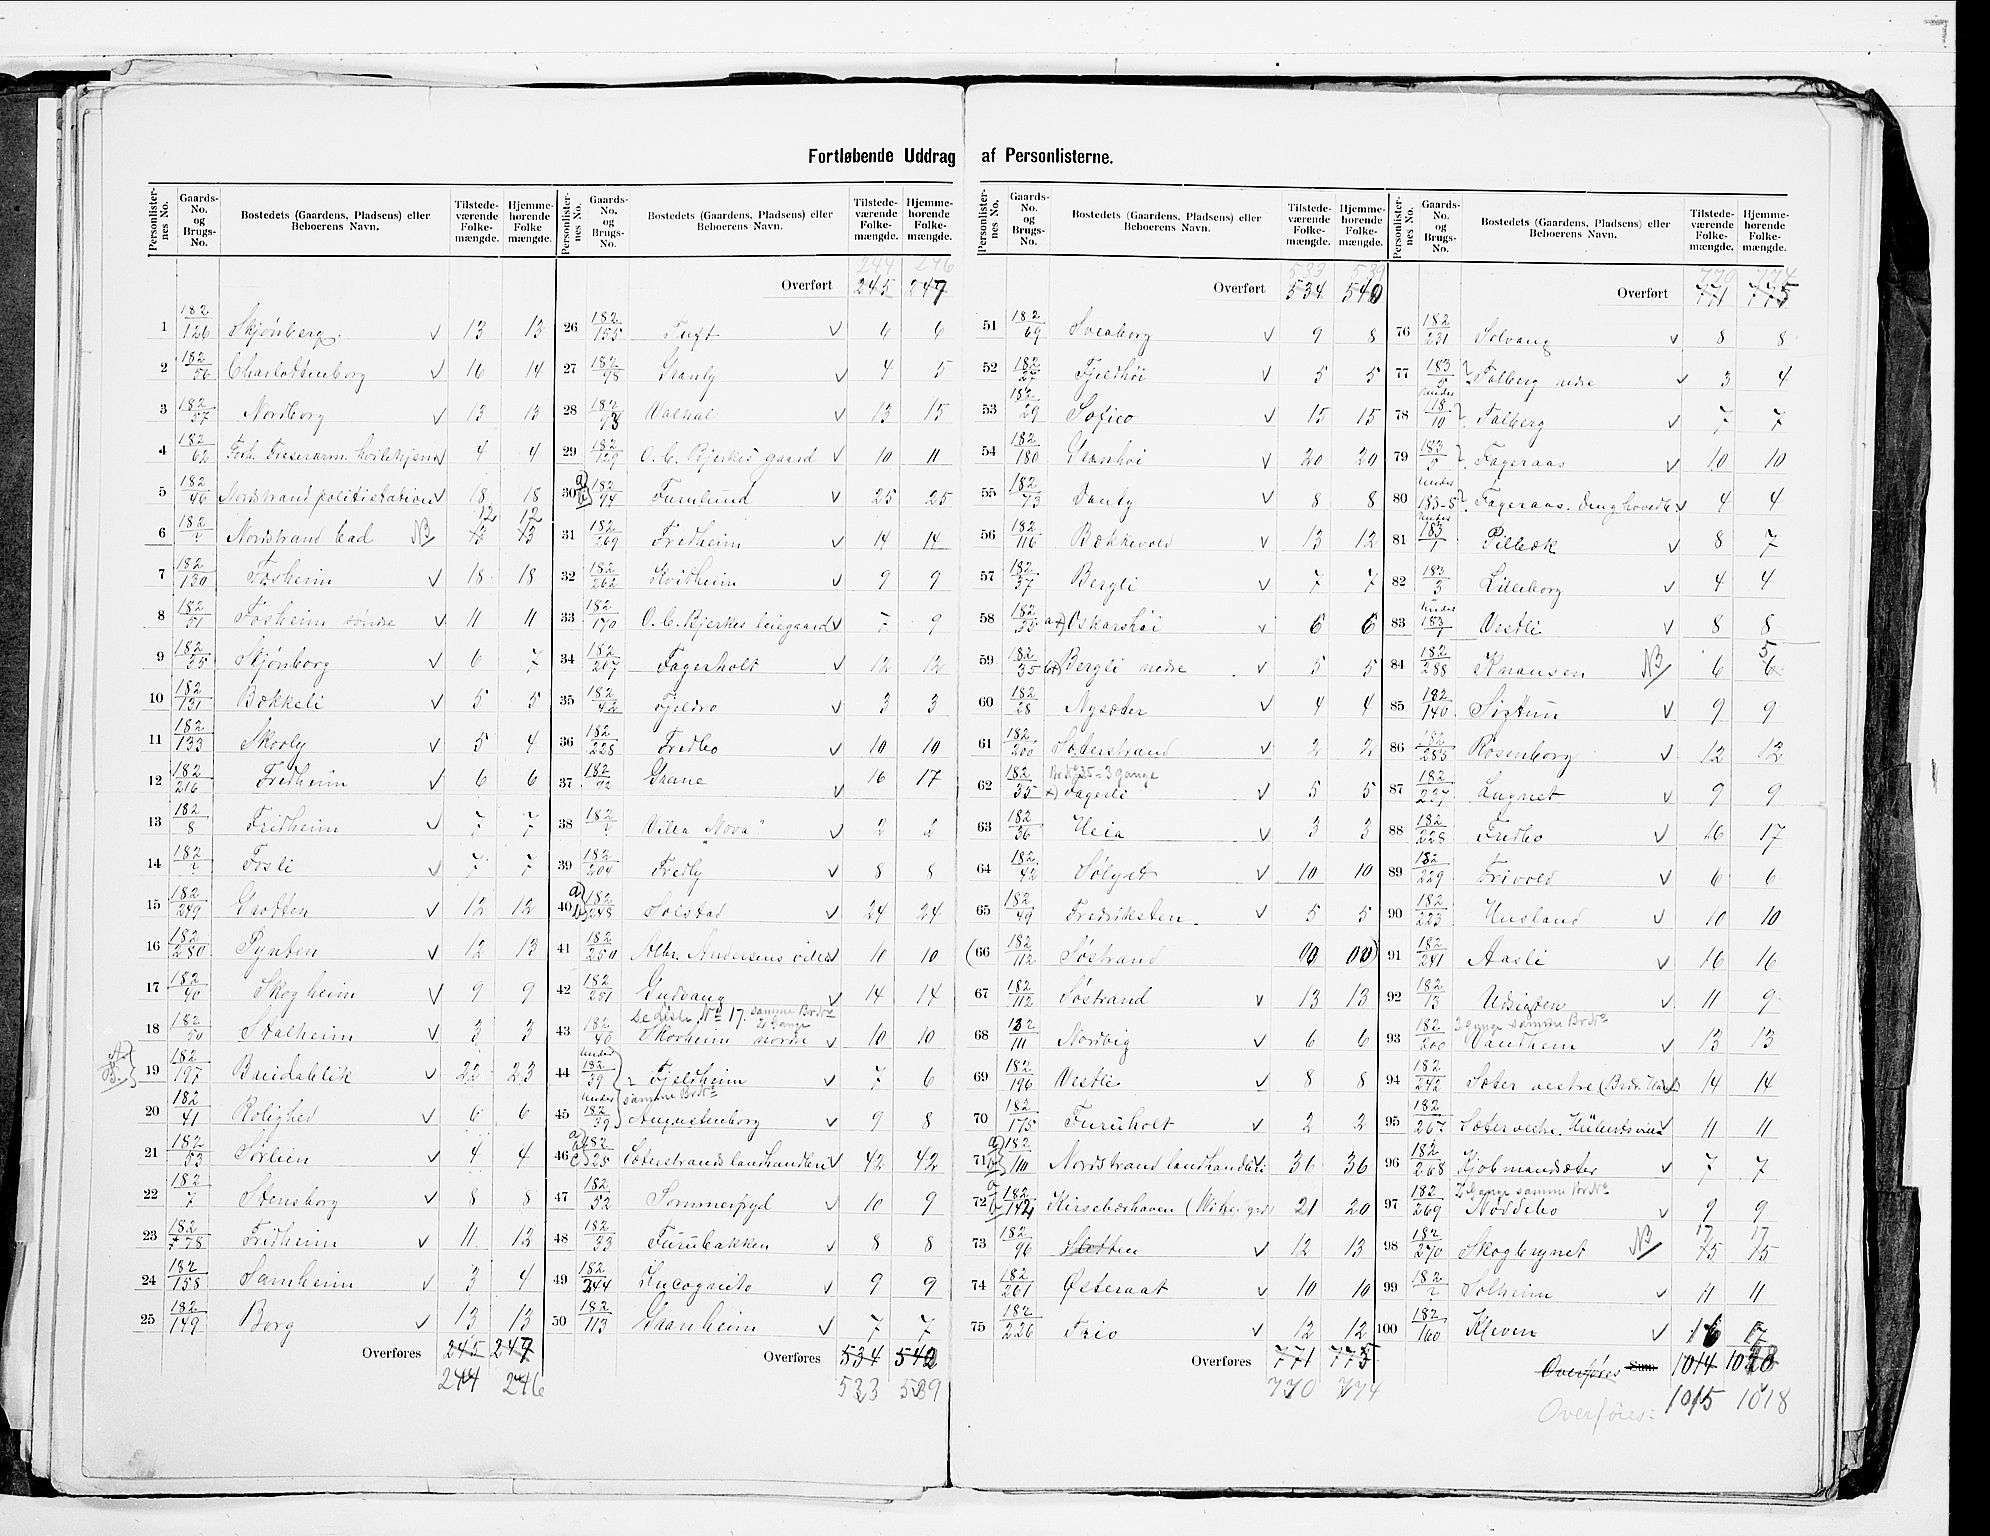 Fortløbende Uddrag af Personlisterne.
Personlisternes No. | Gaards-No. og Brugs-No. | Bostedets (Gaardens, Pladsens) eller Beboerens Navn. | Tilstedeværende Folkemængde. | Hjemmehørende Folkemængde.
1 182/126 Skjønberg. v 13 13
2 182/56 Charlottenborg v 16 14
3 182/57 Nordborg v 13 13
4 182/62 4 4
5 182/46 Nordstrand politistation v 18 18
6 182/? Nordstrand bad NB 13 13 12 12
7 182/130 Fosheim v 18 18
8 182/51 Fosheim søndre v 11 11
9 182/35 Skjønborg v 6 7
10 182/131 Bækkeli v 5 5
11 182/133 Skovly v 5 4
12 182/216 Fredheim v 6 6
13 182/8 Fridheim v 7 7
14 182/? Fosli v 7 7
15 182/249 Grotten v 12 12
16 182/280 Pynten v 12 13
17 182/40 Skogheim v 9 9
18 182/50 Stalheim v 3 3
A. B. 19 182/197 v 22 23
20 182/41 Rolighed v 6 6
21 182/53 Sørlien v 4 4
22 182/7 Stensborg v 8 8
23 182/78 Fridheim v 11 12
24 182/158 Samheim v 3 4
25 182/149 Borg v 13 13
Overføres 245 247
244 246
244 246
Overført 245 247
26 182/155 Tuft v 6 6
27 182/98 Granly v 4 5
28 182/93 Valhal v 13 15
29 182/129 O. C. Bjerkes gaard v 10 11
30 a b 182/94 Furulund v 25 25
31 182/269 Fredheim v 14 14
32 182/262 Kvitheim v 9 9
33 182/170 O. C. Bjerkes leiegaard v 7 9
34 182/207 Fagerholt v 12 12
35 182/42 Fjeldro v 3 3
36 182/228 Fredbo v 10 10
37 182/92 Grane v 16 17
38 182/? Villa "Nova" v 2 2
39 182/204 Fredly v 8 8
40 a b 182/248 Solstad v 24 24
41 182/250 Albr. Andersens villa v 10 10
42 182/251 Gudvang v 14 14
Se Liste No 17. samme Br.No 2 Gange
43 182/40 Skovheim nordre v 10 10
44 under 182/39 Fjeldheim v 7 6
samme Br.No
45 under 182/39 Augustenborg v 9 8
46 a b c 182/25 Sæterstrands landhandleri v 42 42
47 182/52 Sommerfryd v 10 9
48 182/33 Furubakken v 8 8
49 182/244 Incognito v 9 9
50 182/113 Granheim v 7 7
Overføres 534 540
533 539
533 539
Overført 534 540
51 182/69 Sveaborg v 9 8
52 182/27 Fjeldhøi v 5 5
53 182/29 Sofieo v 15 15
54 182/180 Granhøi v 20 20
55 182/73 Danly v 8 8
56 182/116 Bækkevold v 13 12
57 182/37 Bergli v 7 7
58 182/35 Oskarshøi v 6 6
59 182/35 Bergli nedre v 5 5
60 182/28 Nysæter v 4 4
61 182/200 Sæterstrand v 2 2
Br.No 35 = 3 gange
62 182/35 Fagerli v 5 5
63 182/36 Heia v 3 3
64 182/42 Sølyst v 10 10
65 182/49 Fredriksten v 5 5
(66 182/112 Søstrand 00 00)
67 182/112 Søstrand v 13 13
68 182/111 Nordvig v 6 6
69 182/196 Vestli v 8 8
70 182/175 Furuholt v 2 2
71 a b 182/110 Nordstrand landhandleri 36 36
72 a b 182/142 Kirsebærhaven 21 20
73 182/96 Sletten v 12 13
74 182/261 Østeraat v 10 10
75 182/226 Trio v 12 12
Overføres 771 775
770 774
770 774
Overført 771 775
76 182/231 Solvang v 8 8
77 183/5 Falberg nedre v 3 4
78 under 18/10 Falberg v 7 7
79 183/5 Fageraas v 10 10
80 under 183-5 Fageraas. v 4 4
81 under 183/1 Pilbæk v 8 7
82 183/3 Lilleborg v 4 4
83 under 183/1 Vestli v 8 8
84 182/288 Knausen NB 6 6 5
85 182/140 Sigtun v 9 9
86 182/285 Rosenborg v 12 12
87 182/237 Lugnet v 9 9
88 182/228 Fredbo v 16 17
89 182/229 Frivold v 6 6
90 182/223 Husland v 10 10
91 182/241 Aasli v 16 16
92 182/13 Udsigten v 11 9
2 gange samme Br.No
93 182/200 Vandhem v 13 13
94 182/242 Sæter vestre v 14 14
95 182/267 Sæter vestre. v 11 11
96 182/268 Kjøbmandsæter v 7 7
2 Gange samme Br.No
97 182/269 Nøddebo v 9 9
98 182/270 Skogbrynet NB 15 15 17 17
99 182/? Solheim v 11 11
100 182/160 Kleven v 16 17
Overføres Sum 1014 1020
Overføres: 1015 1018